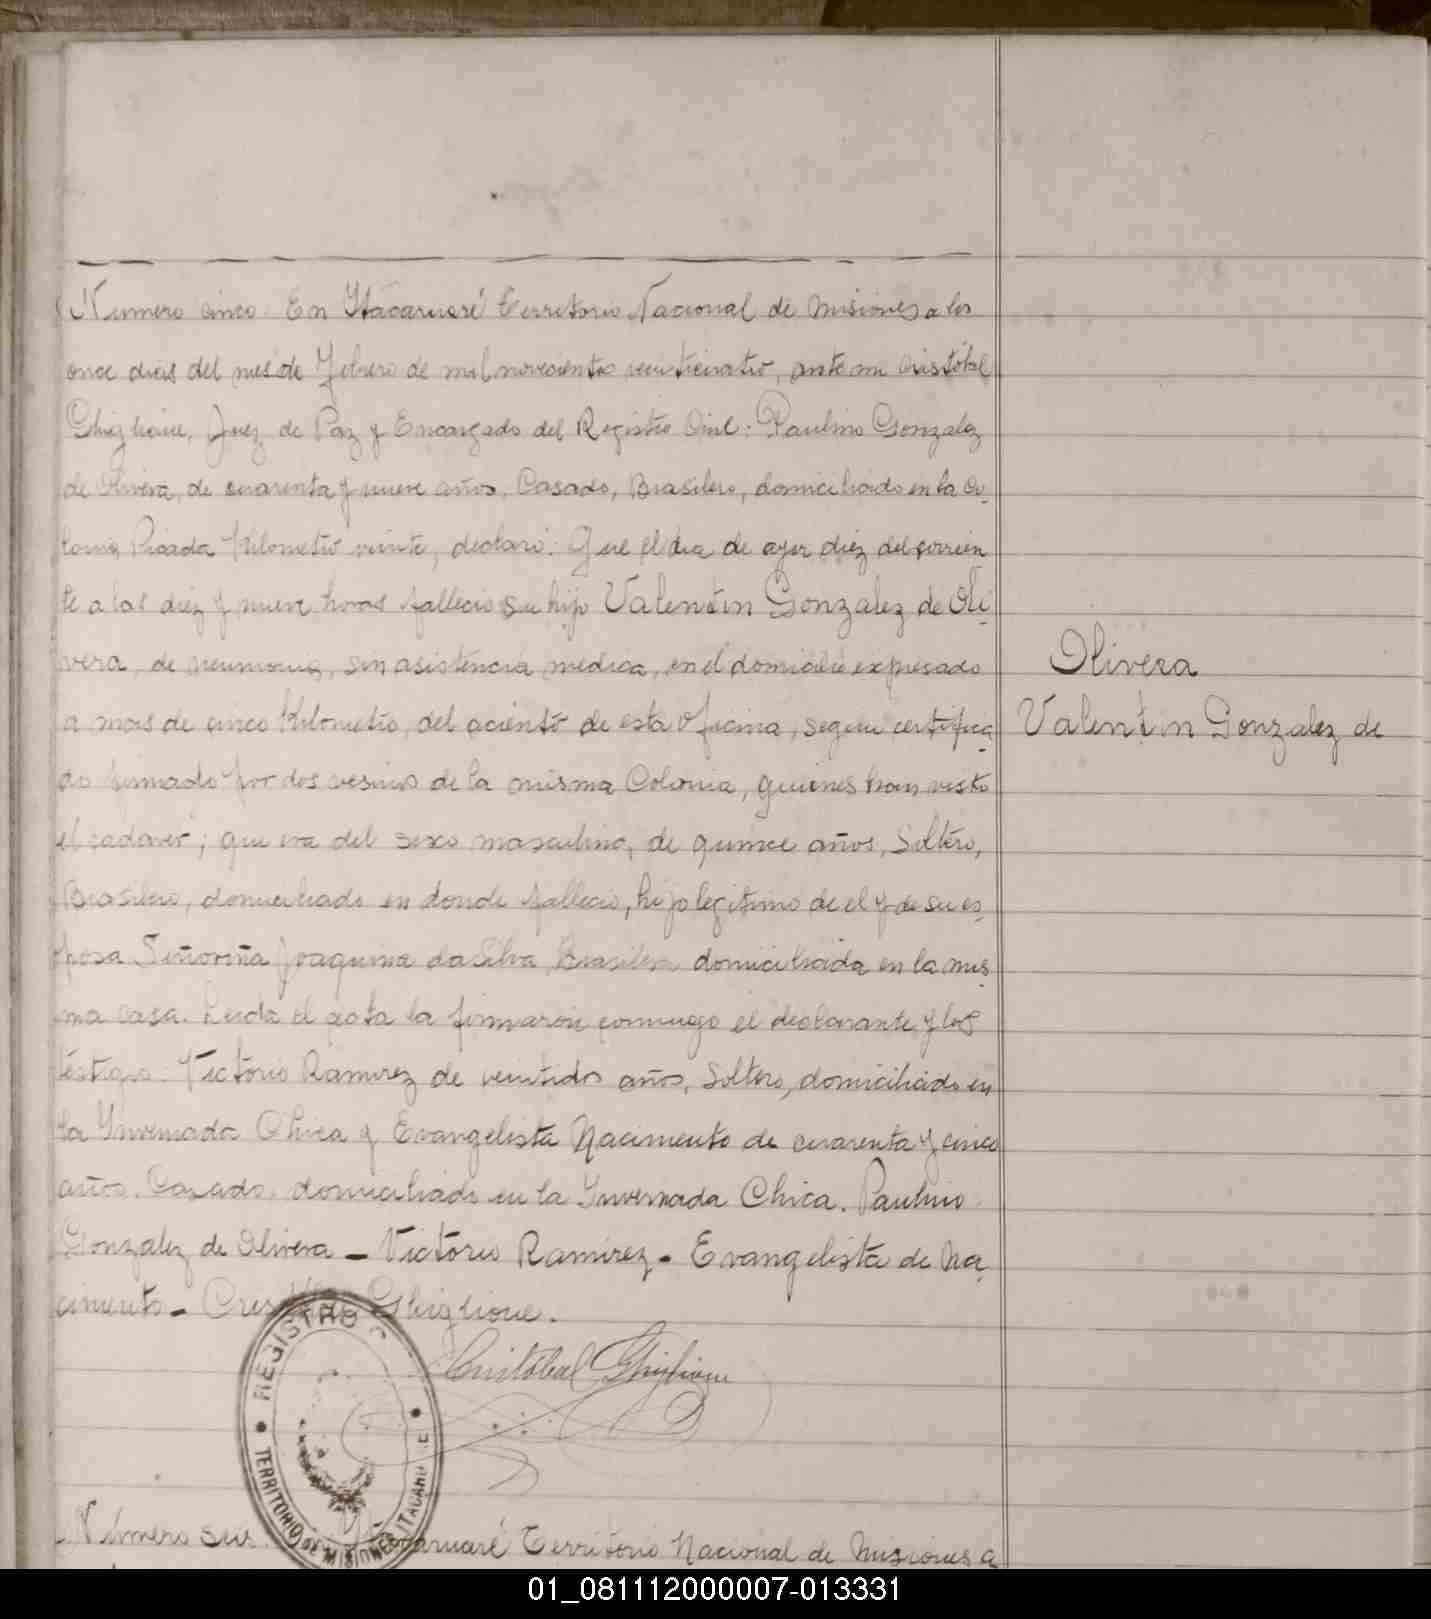 Numero cinco. En Itacaruaré Territorio Nacional de Misiones a los
once dias del mes de Febrero de mil novecientos veinticuatro, ante mi Cristóbal
Ghiglione, Juez de Paz y Encargado del Registro Civil: Paulino Gonzalez
de Olivera, de cuarenta y nueve años, Casado, Brasilero, domiciliado en la Co-
lonia Picada Kilometro veinte, declaró: Que el dia de ayer diez del corrien
te a las diez y nueve horas fallecio su hijo Valentin Gonzalez de Oli-
vera, de neumonia, sin asistencia medica, en el domicilio expresado
a mas de cinco Kilometros del aciento de esta Oficina, segun certifica-
do firmado por dos vesinos de la misma Colonia, quienes han visto
el cadaver; que era del sexo masculino, de quince años, Soltero,
Brasilero, domiciliado en donde fallecio, hijo legitimo de el y de su es-
posa Señoriña Joaquina da Silva, Brasilera domiciliada en la mis-
ma casa. Leida el acta la firmaron conmigo el declarante y los
testigos: Victorio Ramirez de veintidos años, Soltero, domiciliado en
la Invernada Chica y Evangelista Nacimento de cuarenta y cinco
años. Casado. domiciliado en la Invernada Chica. Paulino
Gonzalez de Olivera - Victorio Ramirez - Evangelista de Na-
cimento - Cristóbal Ghiglione.
Olivera
Valentin Gonzalez de
Cristóbal Ghiglione
REGISTRO C
TERRITORIO DE MISIONES ITACARUARE
Número seis. En Itacaruaré Territorio Nacional de Misiones a
01_081112000007-013331